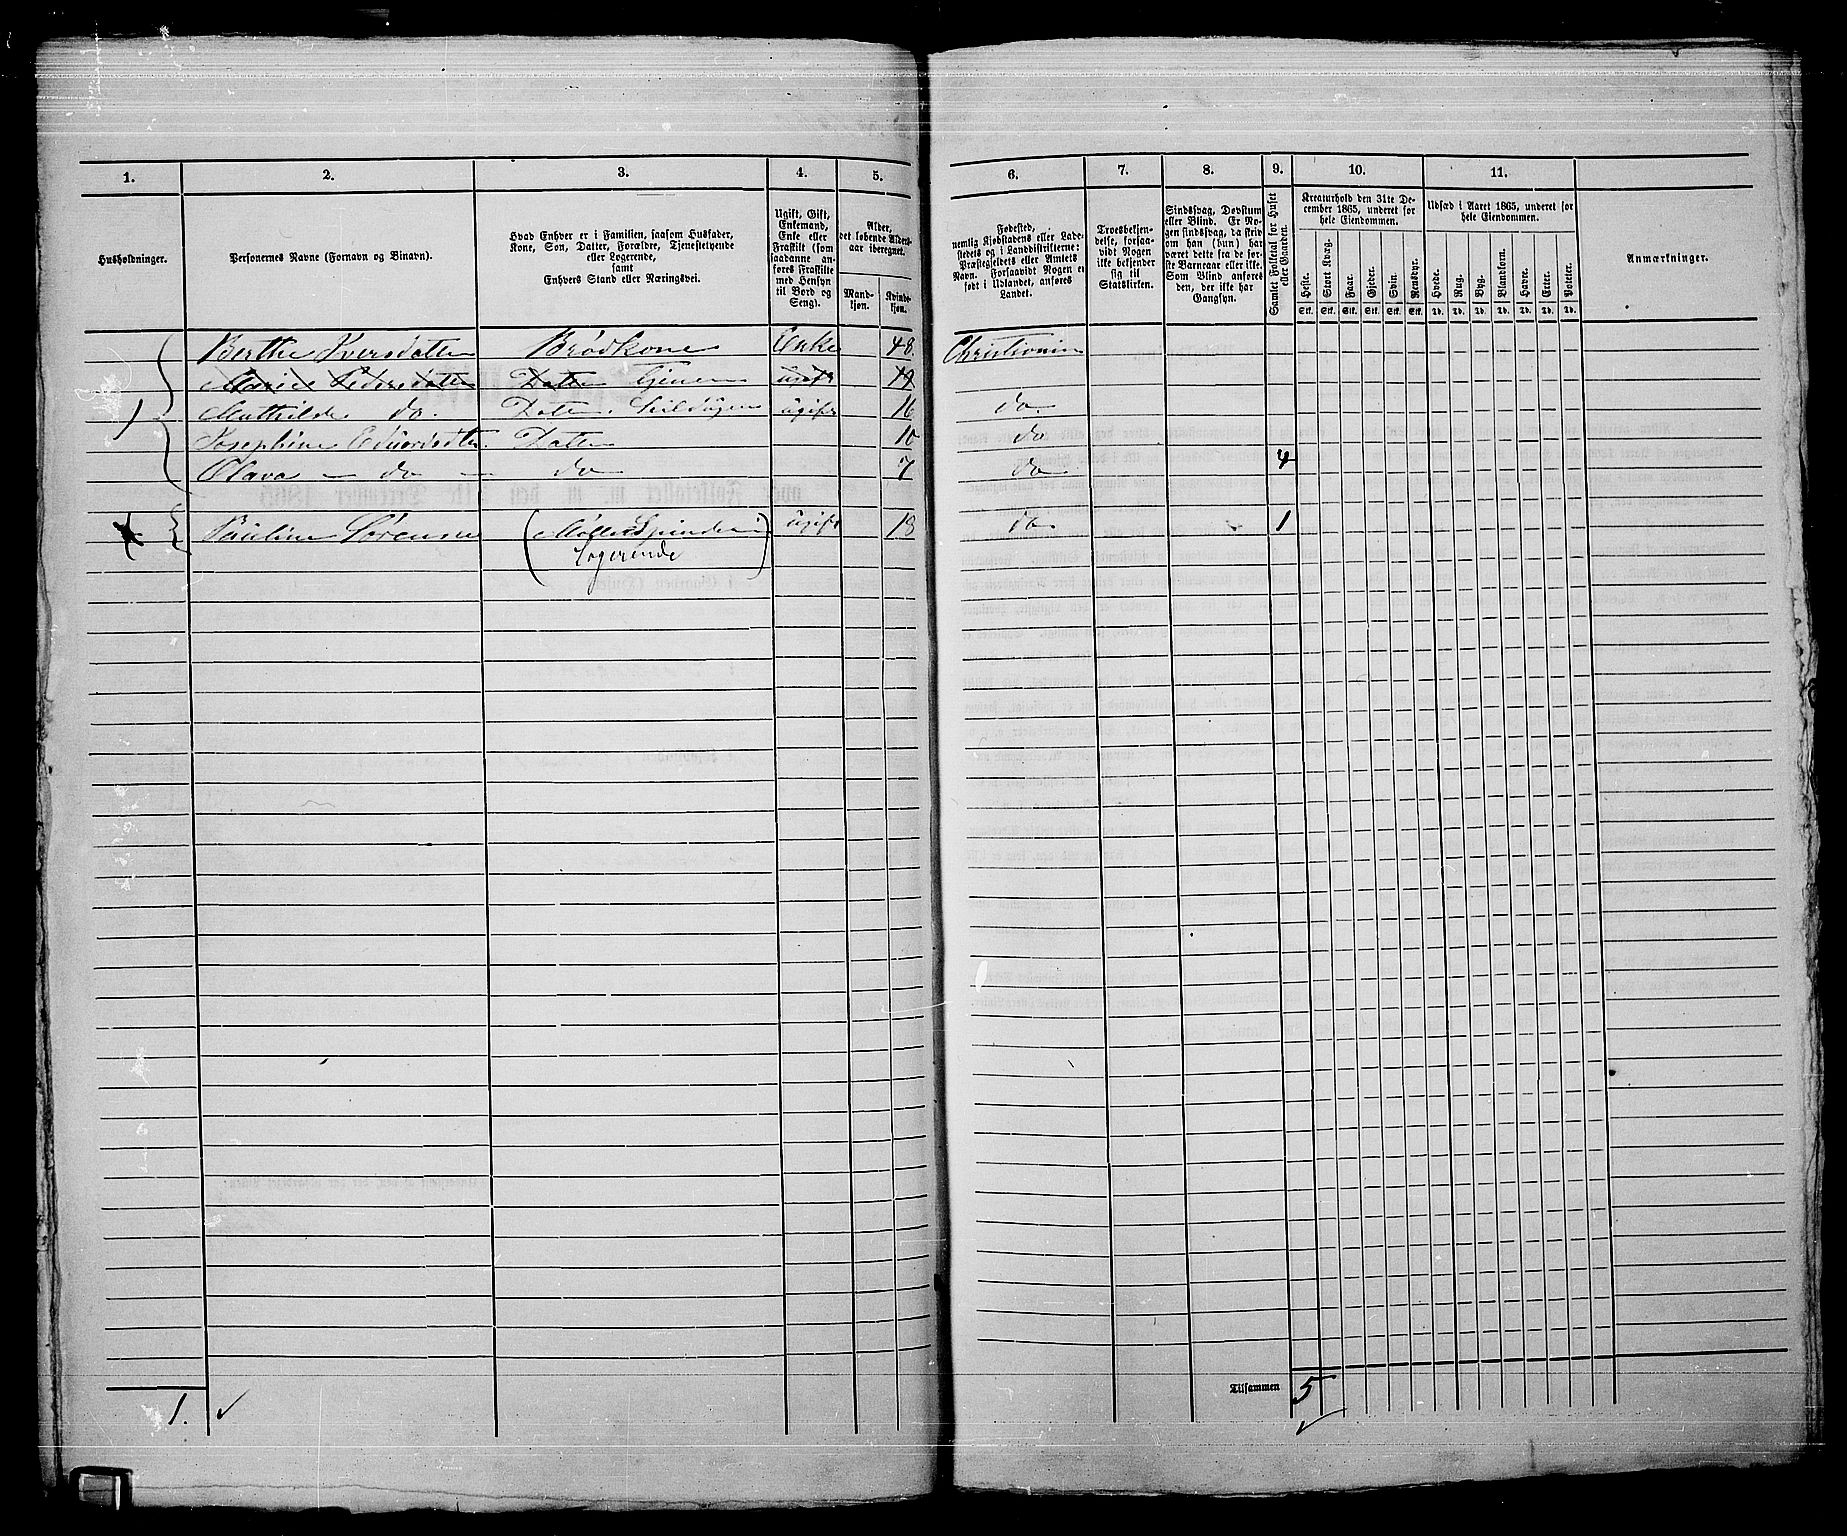 1.
2.
3.
4.
5.
6.
7.
8.
9.
10.
11.
Husholdninger.
Personernes Navne (Fornavn og Binavn).
Hvad Enhver er i Familien, saasom Husfader,
Kone, Søn, Datter, Forældre, Tjenestetyende
eller Logerende,
samt
Enhvers Stand eller Næringsvei.
Ugift, Gift,
Enkemand,
Enke eller
Fraskilt (som
saadanne an-
føres Fraskilte
med Hensyn
til Bord og
Seng).
Alder,
det løbende Alders-
aar iberegnet.
Mand-
kjøn.
Kvinde-
kjøn.
Fødested,
nemlig Kjøbstadens eller Lade-
stedets og i Landdistrikterne:
Præstegjeldets eller Amtets
Navn. Forsaavidt Nogen er
født i Udlandet, anføres
Landet.
Troesbekjen-
delse, forsaa-
vidt Nogen
ikke bekjender
sig til
Statskirken.
Sindssvag, Døvstum
eller Blind. Er No-
gen sindssvag, da skriv
om han (hun) har
været dette fra de før-
ste Barneaar eller ikke.
Som Blind anføres
den, der ikke har
Gangsyn.
Samlet Folketal for Huset
eller Gaarden.
Kreaturhold den 31te De-
cember 1865, underet for
hele Eiendommen.
Heste.
Stort Kvæg.
Faar.
Gjeder.
Svin.
Rensdyr.
Stk. Stk. Stk. Stk. Stk. Stk.
Udsæd i Aaret 1865, underet for
hele Eiendommen.
Hvede.
Rug.
Byg.
Blandkorn.
Havre.
Erter.
Poteter.
Td. Td. Td. Td. Td. Td. Td.
Anmærkninger.
Berthe Iversdatter Brødkone Enke 48. Christiania
Marie Pedersdatter Datter tjener ugift 19
1 Mathilde do. Datter ugift 16 do.
Josephine Edvardsdtr. Datter 10 do
Olava - do - do 7 do 4
Pauline Sørensen (Møllespinderi ugift 18 do 1
Logerende)
1.
Tilsammen 5